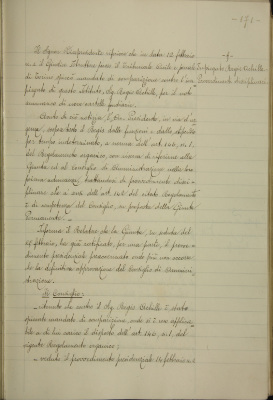 - 171 -
Il Signor Vicepresidente riferisce che in data 12 febbraio
- 4 -
u.s. il Giudice Istruttore presso il Tribunale civile e penale
Impiegato Regio Carbello
di Torino spiccò mandato di comparizione contro l'im
Provvedimento disciplinare
piegato di questo Istituto, Sig. Regio Carbello, per il noto
ammanco di una cartella fondiaria.
Avuta di ciò notizia il Sig. Presidente, in via d'ur
genza, sospendeva il Regio dalle funzioni e dallo stipendio
per tempo indeterminato, a norma dell'art. 146, n. 1,
del Regolamento organico, con riserva di riferirne alla
Giunta ed al Consiglio di Amministrazione nella loro
prima adunanza, trattandosi di provvedimento disci
plinare che ai sensi dell'art. 145 del citato Regolamento
è di competenza del Consiglio, su proposta della Giunta
Permanente.
Informa il Relatore che la Giunta, in seduta del
19 febbraio, ha già ratificato, per una parte, il provve
dimento presidenziale proponendo nello più non occorre
che la definitiva approvazione del Consiglio di Ammini
strazione.
Il Consiglio:
- ritenuto che contro il Sig. Regio Carbello è stato
spiccato mandato di comparizione, onde si è reso applica
bile a di lui carico il disposto dell'art. 146, n. 1, del
vigente Regolamento organico;
- veduto il provvedimento presidenziale 14 febbraio u.s.